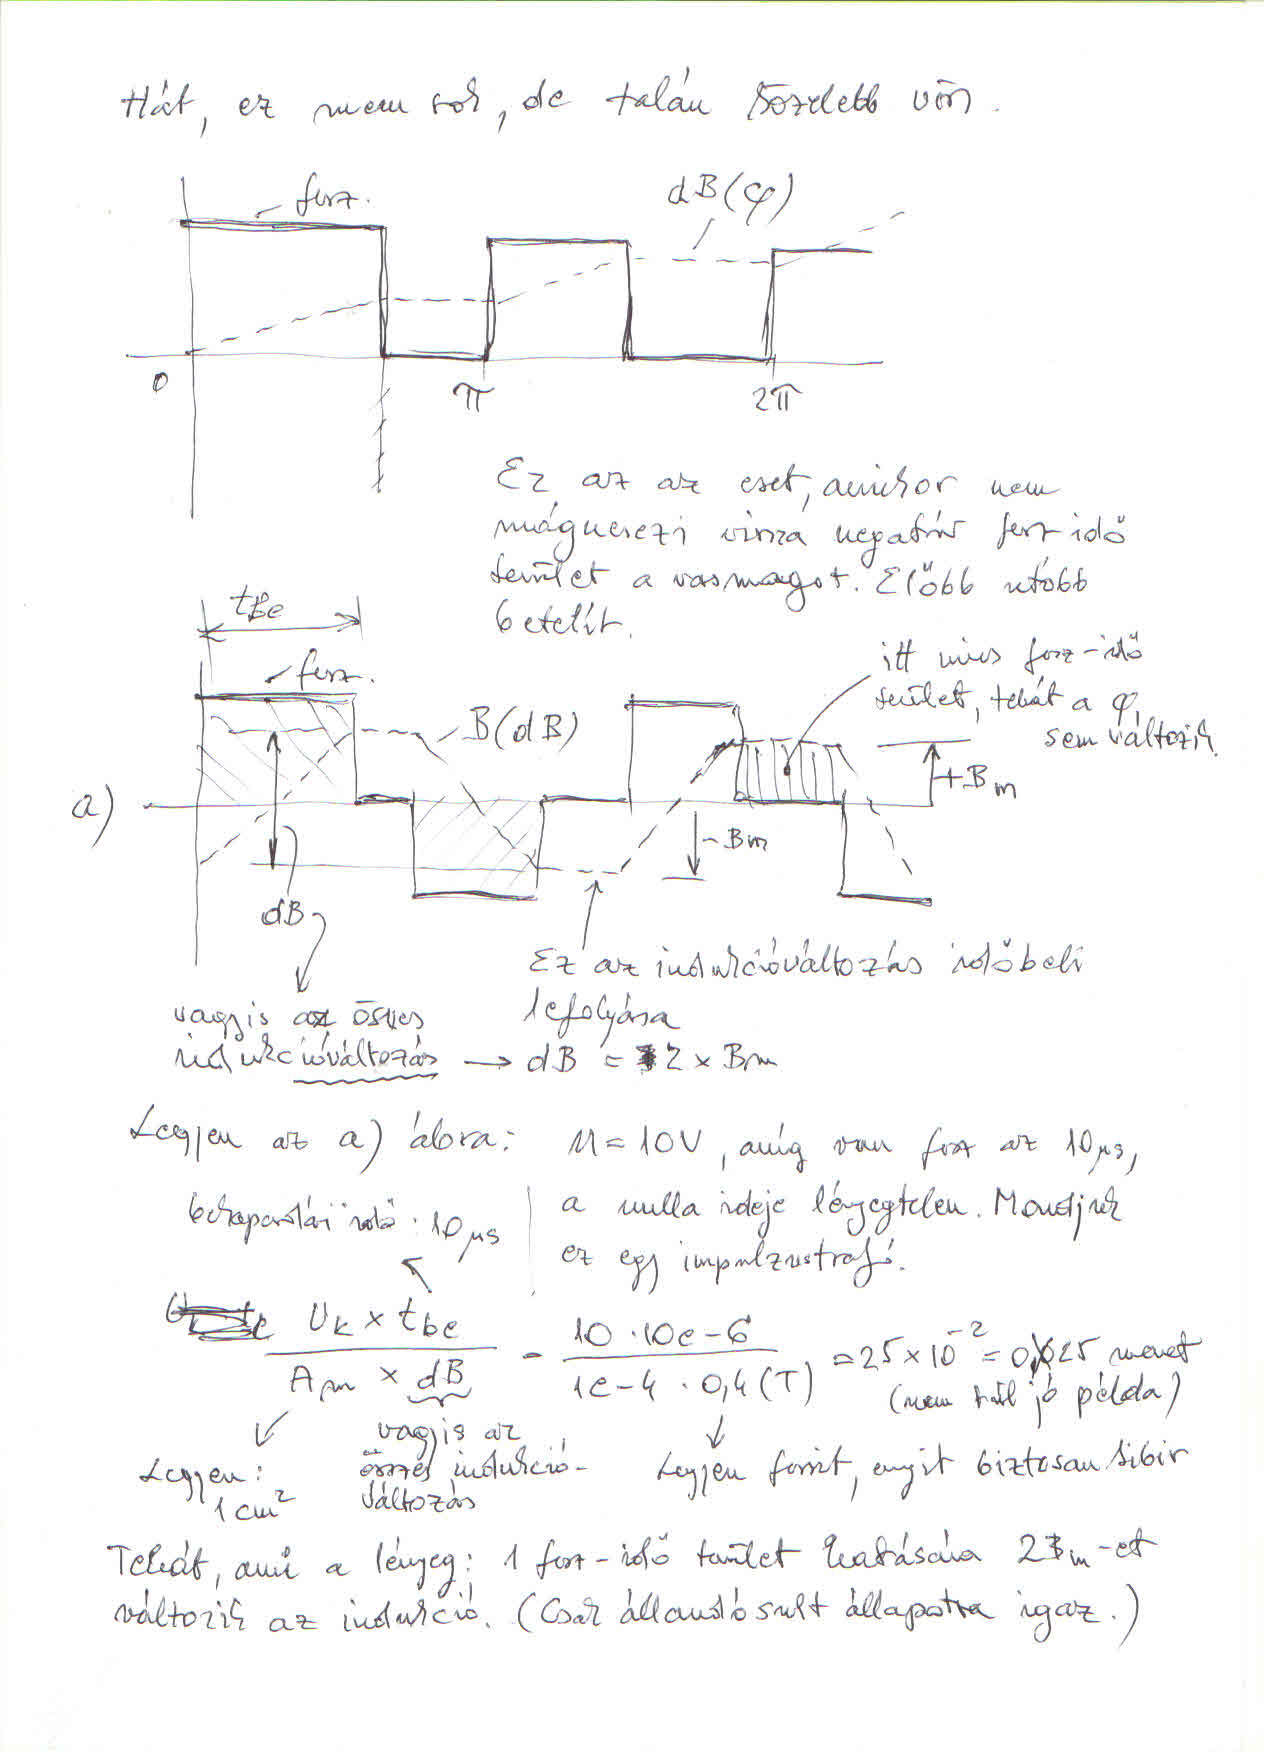 Hát, ez nem sok, de talán közelebb visz.
fesz.
dB(φ)
0
π
2π
Ez az az eset, amikor nem
mágnesezi vissza negatív fesz idő
terület a vasmagot. Előbb utóbb
betelít.
tbe
fesz.
B(dB)
itt nincs fesz-idő
terület, tehát a φ
sem változik.
+Bm
a)
-Bm
dB
Ez az indukcióváltozás időbeli
lefolyása
vagyis az összes
indukcióváltozás → dB = 2 × Bm
Legyen az a) ábra: U = 10V, amíg van fesz az 10μs,
a nulla ideje lényegtelen. Mondjuk
ez egy impulzustrafó.
bekapcsolási idő: 10μs
Uk × tbe / Am × dB = 10 · 10e-6 / 1e-4 · 0,4(T) = 25×10⁻² = 0,25 menet
(nem túl jó példa)
Legyen:
1 cm²
vagyis az
összes indukció-
változás
Legyen ferrit, ennyit biztosan kibír
Tehát, ami a lényeg: 1 fesz-idő terület hatására 2Bm-et
változik az indukció. (Csak állandósult állapotra igaz.)